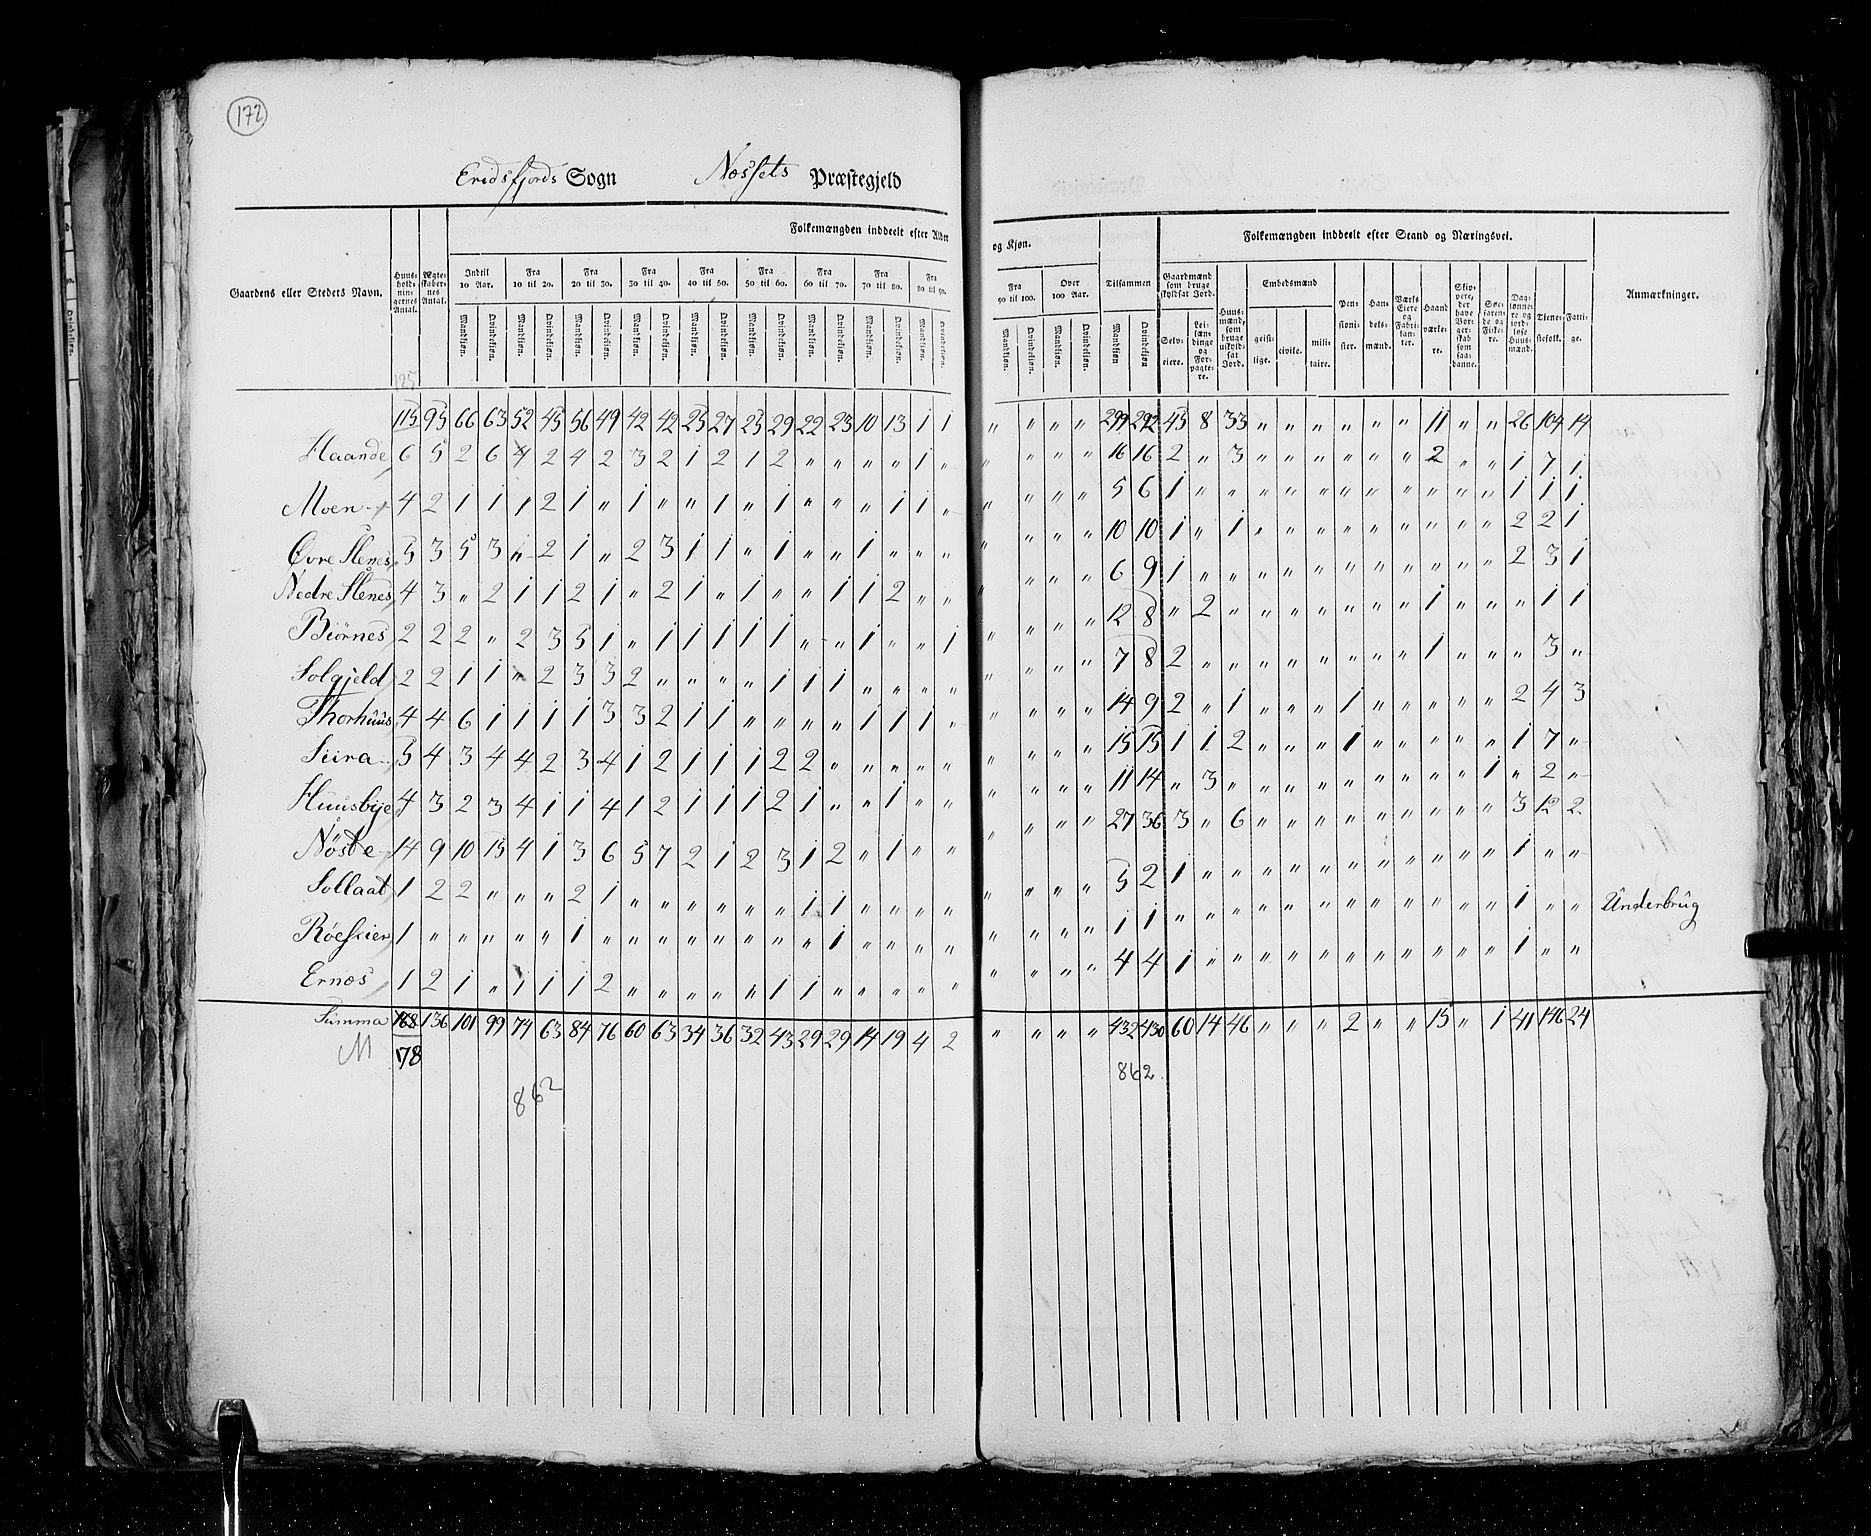 172
Eridsfjords Sogn Næssets Præstegjeld
Folkemængden inddeelt efter Alder og Kjøn. Folkemængden inddeelt efter Stand og Næringsvei.
Gaardens eller Steders Navn. Huus-holdningernes Antal. Ægteskabernes Antal. Indtil 10 Aar. Fra 10 til 20. Fra 20 til 30. Fra 30 til 40. Fra 40 til 50. Fra 50 til 60. Fra 60 til 70. Fra 70 til 80. Fra 80 til 90. Fra 90 til 100. Over 100 Aar. Tilsammen Gaardmænd som bruge skyldsat Jord. Huusmænd, som bruge uskyldsat Jord. Embedsmænd Pensionister. Handelsmænd. Værks Eiere og Fabrikanter. Haandværkere. Skippere, der have Borgerskab som saadanne. Søefarende og Fiskere. Daglønnere og jordløse Huusmænd. Tienestefolk. Fattige. Anmærkninger.
Mandkiøn. Qvindekiøn. Mandkiøn. Qvindekiøn. Mandkiøn. Qvindekiøn. Mandkiøn. Qvindekiøn. Mandkiøn. Qvindekiøn. Mandkiøn. Qvindekiøn. Mandkiøn. Qvindekiøn. Mandkiøn. Qvindekiøn. Mandkiøn. Qvindekiøn. Mandkiøn. Qvindekiøn. Mandkiøn. Qvindekiøn. Mandkiøn. Qvindekiøn Selveiere. Leilændinge og Forpagtere. geistlige. civile. militaire.
125
115 95 66 63 52 45 56 49 42 42 25 27 25 29 22 23 10 13 1 1 " " " " 299 292 45 8 33 " " " " " " 11 " " 26 104 14
Haande 6 5 2 6 4 2 4 2 3 2 1 2 1 2 " " " " 1 " " " " " 16 16 2 " 3 " " " " " " 2 " " 1 7 1
Moen 4 2 1 1 1 2 1 " 1 " " 1 " 1 " " " 1 1 " " " " " 5 6 1 " " " " " " " " " " " 1 1 1
Øvre Slenes 5 3 5 3 " 2 1 " 2 3 1 1 " 1 " " 1 " " " " " " " 10 10 1 " 1 " " " " " " " " " 2 2 1
Nedre Slenes 4 3 " 2 1 1 2 1 " 2 1 " 1 " " 1 1 2 " " " " " " 6 9 1 " " " " " " " " " " " 2 3 1
Biørnes 2 2 2 " 2 3 5 1 " 1 1 1 1 1 " " 1 " " 1 " " " " 12 8 " 2 " " " " " " " 1 " " " 1 1
Solgjeld 2 2 1 1 " 2 3 3 2 " " " " 1 1 1 " " " " " " " " 7 8 2 " " " " " " " " 1 " " " 3 "
Thorhuus 4 4 6 1 1 1 1 3 3 2 1 1 " " " " 1 1 1 " " " " " 14 9 2 " 1 " " " 1 " " " " " 2 4 3
Siira 5 4 3 4 4 2 3 4 1 2 1 1 1 2 2 " " " " " " " " " 15 15 1 1 2 " " " 1 " " " " " 1 7 "
Huusbye 4 3 2 3 4 1 1 4 1 2 1 1 1 2 1 " " 1 " " " " " " 11 14 " 3 " " " " " " " " " 1 " 2 "
Nöste 14 9 10 15 4 1 3 6 5 7 2 1 2 3 1 2 " 1 " " " " " " 27 36 3 " 6 " " " " " " " " " 3 12 2
Sollaat 1 2 2 " " " 2 1 " " " " " " 1 1 " " " " " " " " 5 2 1 " " " " " " " " " " " 1 " "
Röeskier 1 " " " " " 1 " " " " " " " " 1 " " " " " " " " 1 1 " " " " " " " " " " " " 1 " " Underbrug
Ernæs 1 2 1 " 1 1 1 2 " " " " " 1 1 " " " " " " " " " 4 4 1 " " " " " " " " " " " 1 " "
Summa 168 136 101 99 74 63 84 76 60 63 34 36 32 43 29 29 14 19 4 2 " " " " 432 430 60 14 46 " " " 2 " " 15 " 1 41 146 24
M 178
862 862